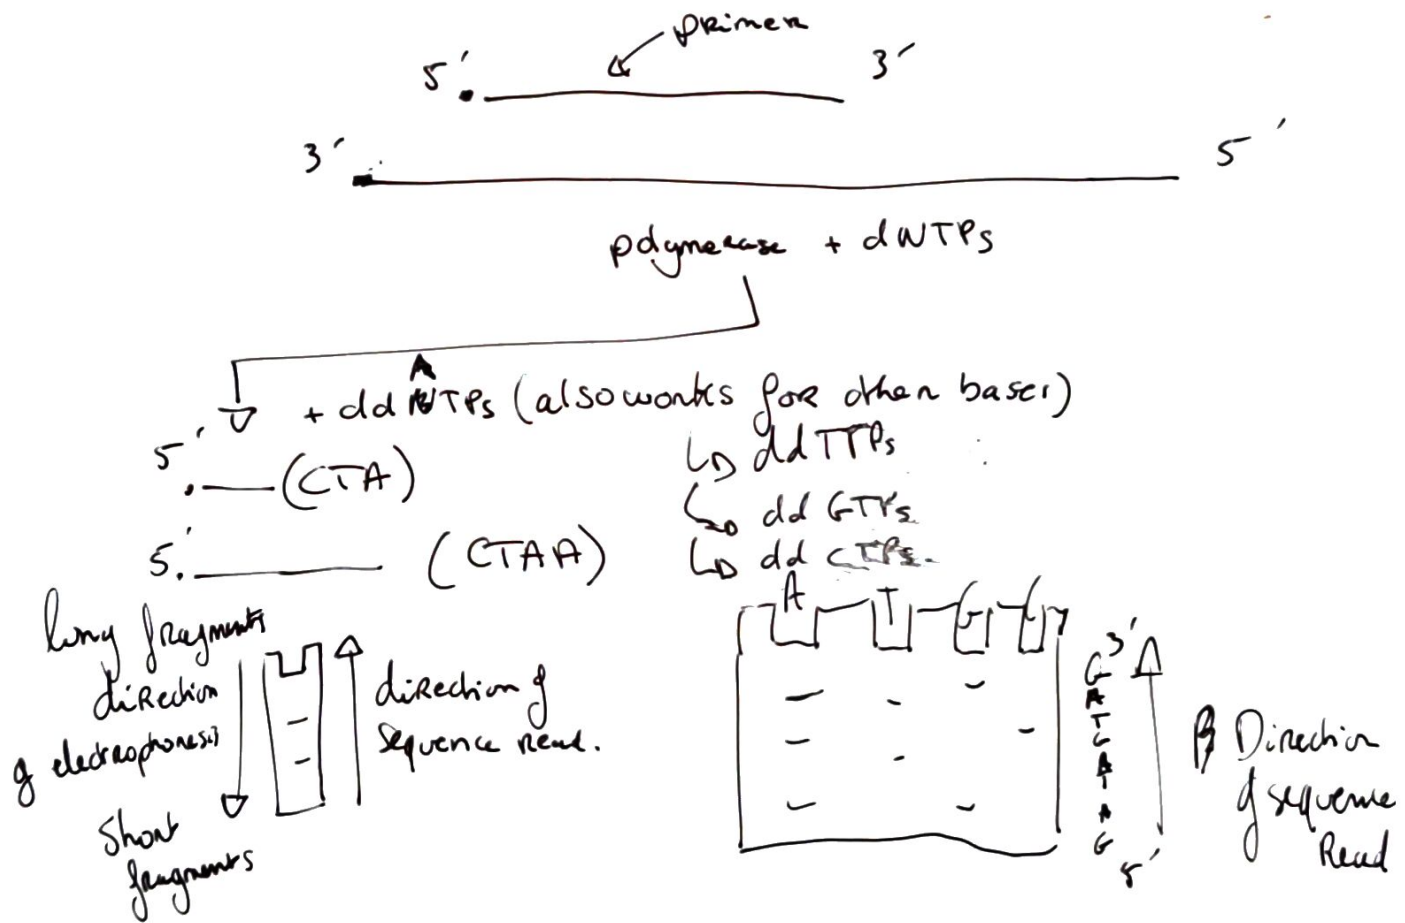 primer
5' 3'
3' 5'
polymerase + dNTPs
+ ddNTPs (also works for other bases)
5' (CTA)
5' (CTAA)
↳ ddTTPs
↳ ddGTPs
↳ ddCTPs.
long fragments
direction
of electrophoresis
short
fragments
direction of
sequence read.
A T G C
3'
G
A
T
C
A
T
A
G
5'
Direction
of sequence
Read